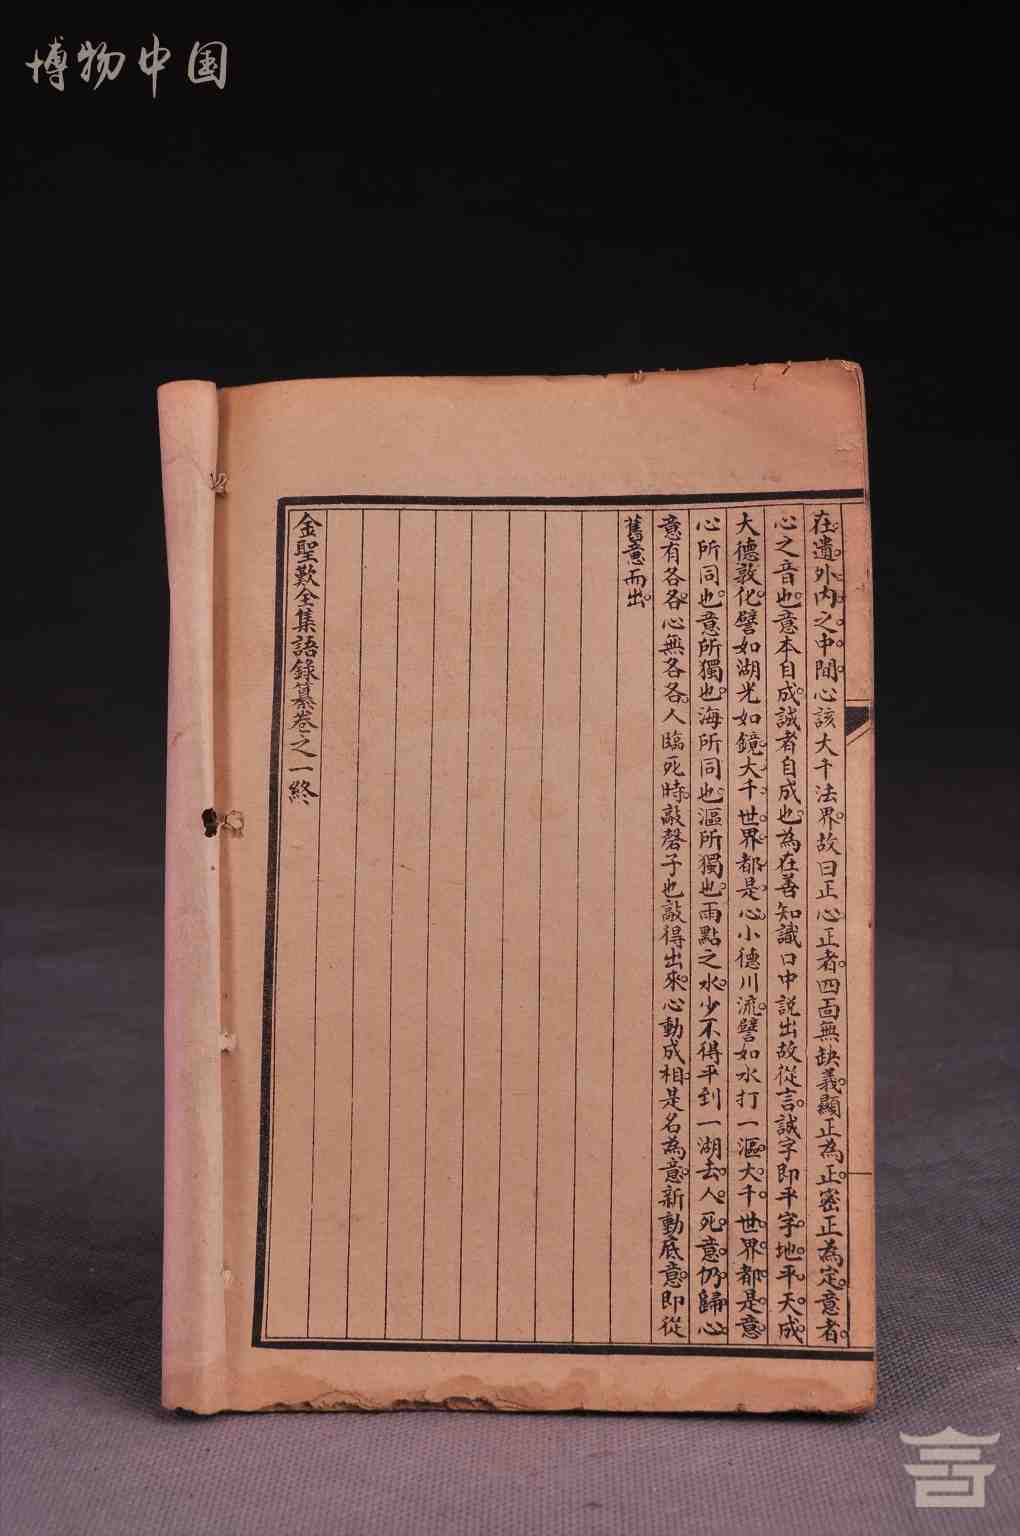 博物中国
在遺外內之中間心該大千法界故曰正心正者四面無缺義顯正為正密正為定意者
心之音也意本自成誠者自成也為在善知識口中説出故從言誠字即平字地平天成
大德敦化譬如湖光如鏡大千世界都是心小德川流譬如水打一漚大千世界都是意
心所同也意所獨也海所同也漚所獨也雨點之水少不得平到一湖去人死意仍歸心
意有各各心無各各人臨死時敲磬子也敲得出來心動成相是名為意新動底意即從
舊意而出
金聖歎全集語錄纂卷之一終